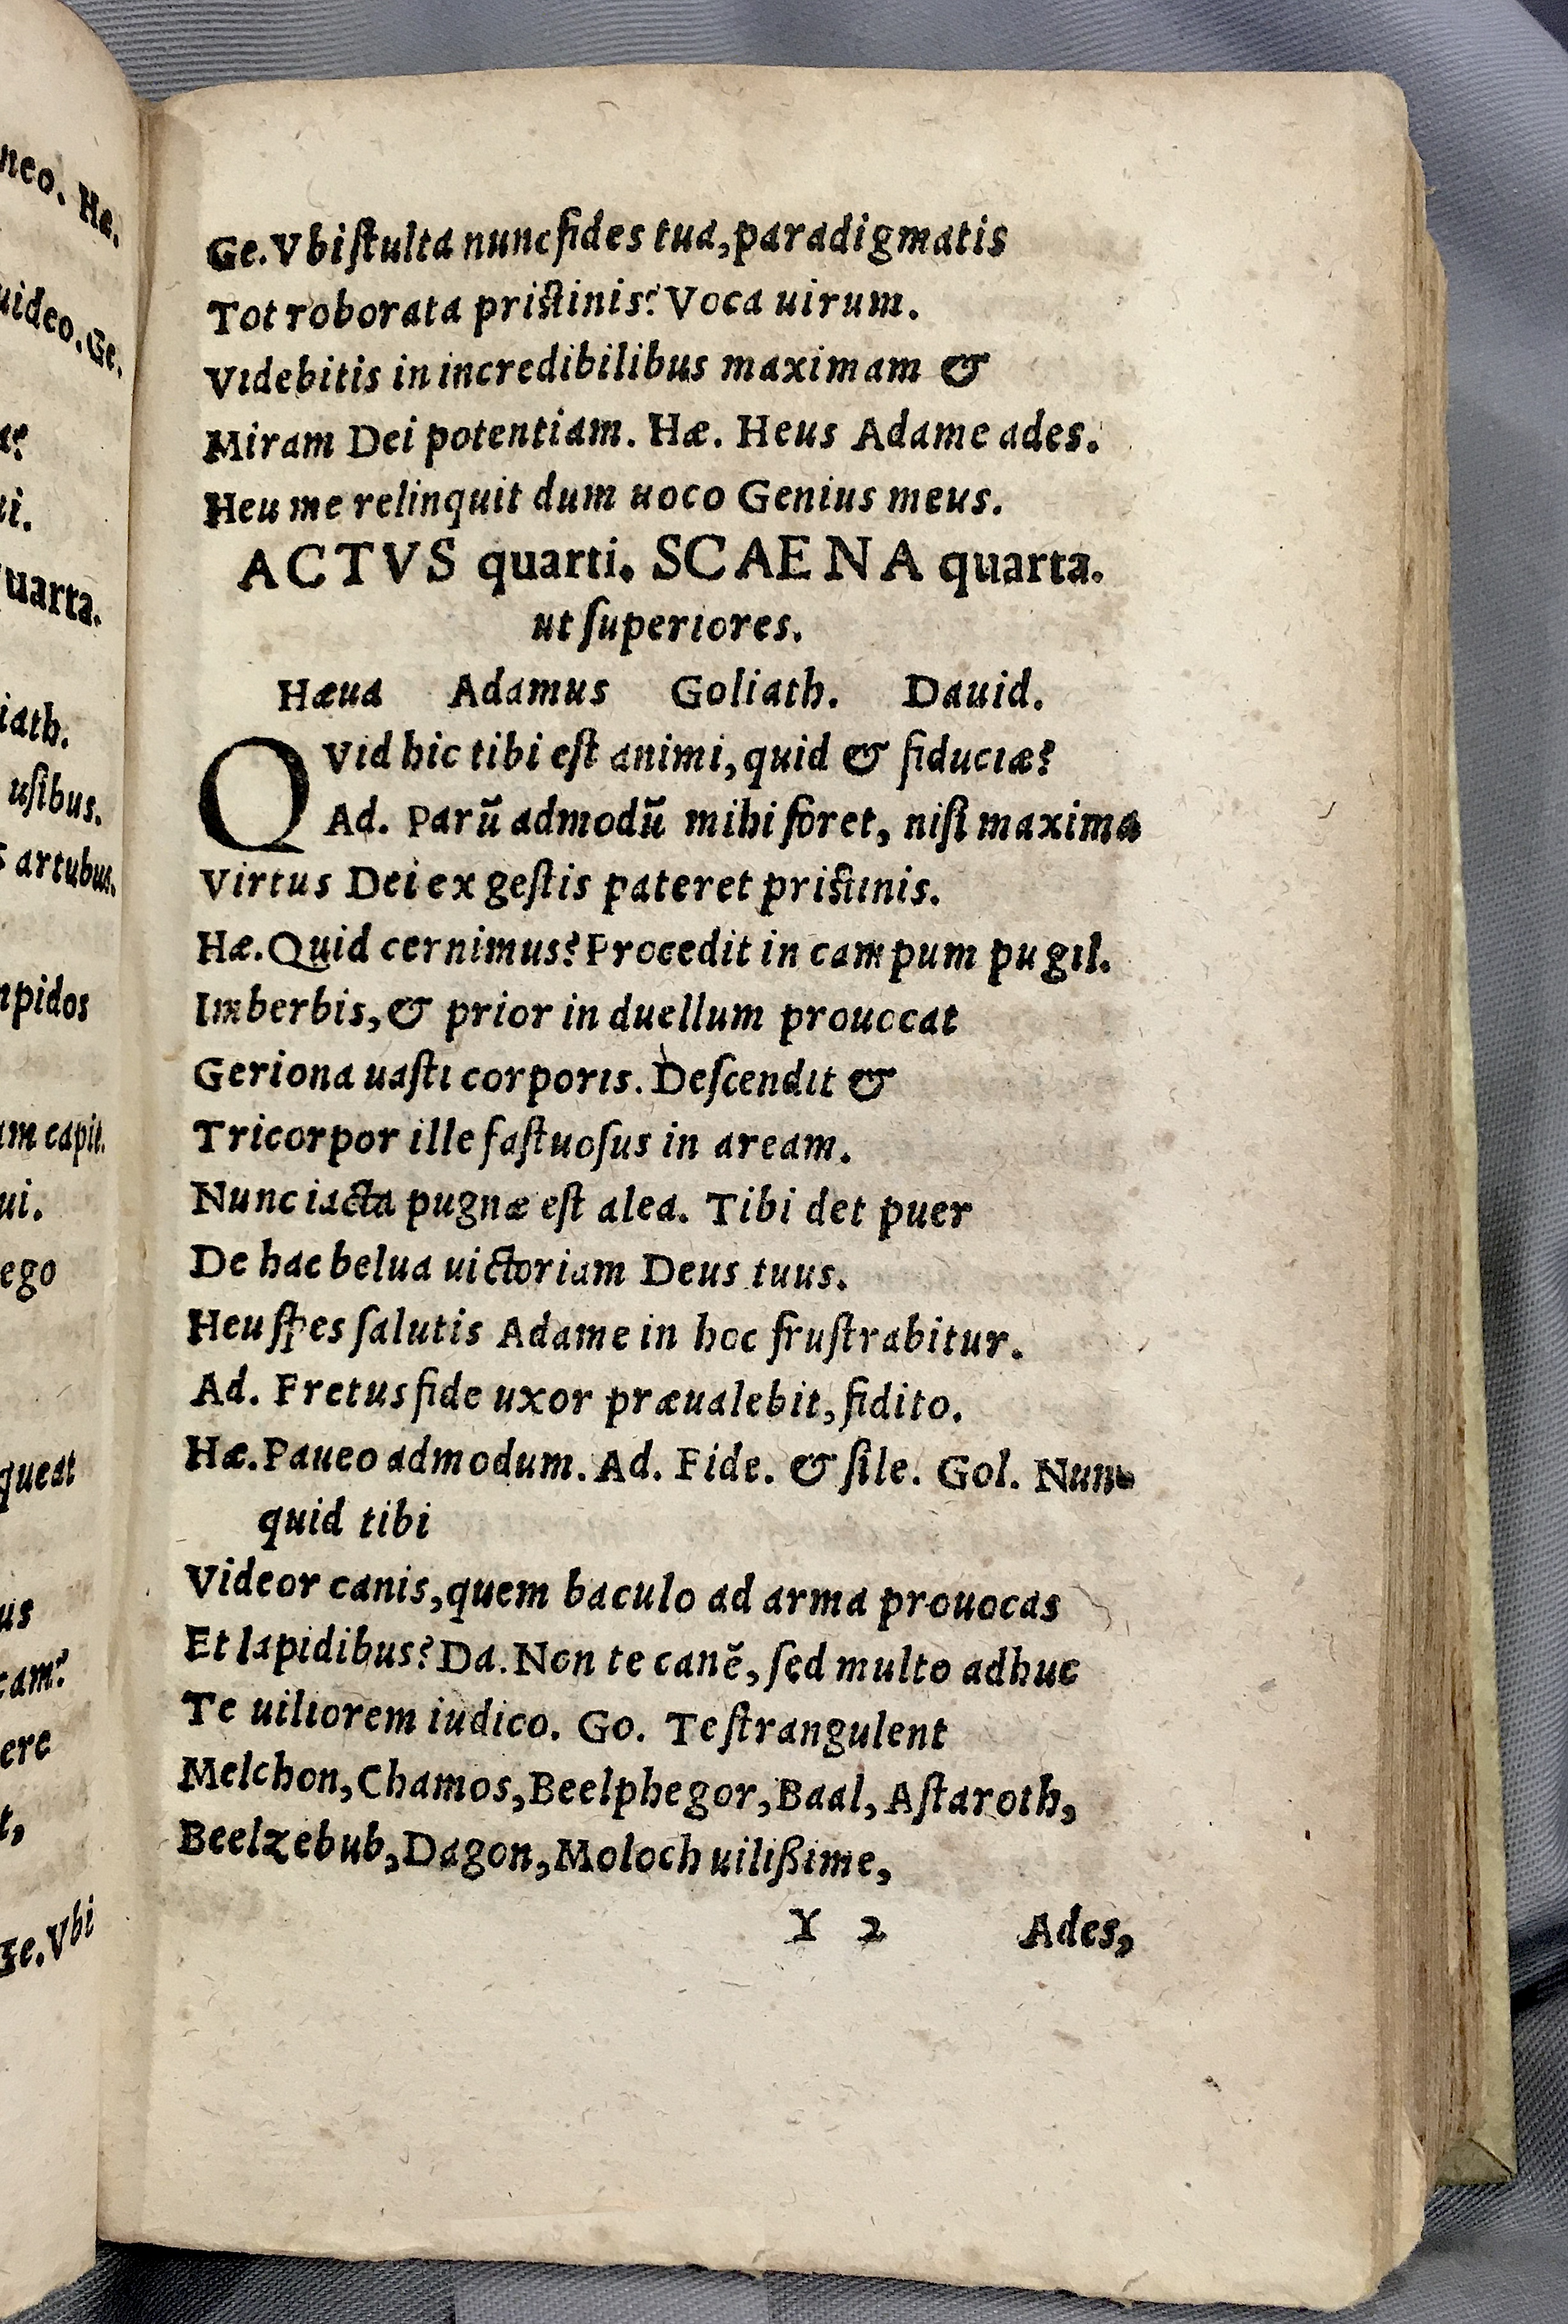 neo. Hæ.
uideo. Ge.
æ?
ui.
uarta.
iath.
usibus.
s artubus.
mpidos
am capit.
ui.
ego
queat
us
cam?
ere
t,
Ge. Vbi
Ge. Vbi ſtulta nunc fides tua, paradigmatis
Tot roborata priſtinis? Voca uirum.
Videbitis in incredibilibus maximam &
Miram Dei potentiam. Hæ. Heus Adame ades.
Heu me relinquit dum uoco Genius meus.
ACTVS quarti. SCAENA quarta.
ut ſuperiores.
Hæua Adamus Goliath. Dauid.
QVid hic tibi eſt animi, quid & fiduciæ?
Ad. Parū admodū mihi foret, niſi maxima
Virtus Dei ex geſtis pateret priſtinis.
Hæ. Quid cernimus? Procedit in campum pugil.
Imberbis, & prior in duellum prouocat
Geriona uaſti corporis. Deſcendit &
Tricorpor ille faſtuoſus in aream.
Nunc iacta pugnæ eſt alea. Tibi det puer
De hac belua uictoriam Deus tuus.
Heu ſpes ſalutis Adame in hoc fruſtrabitur.
Ad. Fretus fide uxor præualebit, fidito.
Hæ. Paueo admodum. Ad. Fide. & ſile. Gol. Nun-
quid tibi
Videor canis, quem baculo ad arma prouocas
Et lapidibus? Da. Non te canē, ſed multo adhuc
Te uiliorem iudico. Go. Te ſtrangulent
Melchon, Chamos, Beelphegor, Baal, Aſtaroth,
Beelzebub, Dagon, Moloch uilißime,
Y 2 Ades,